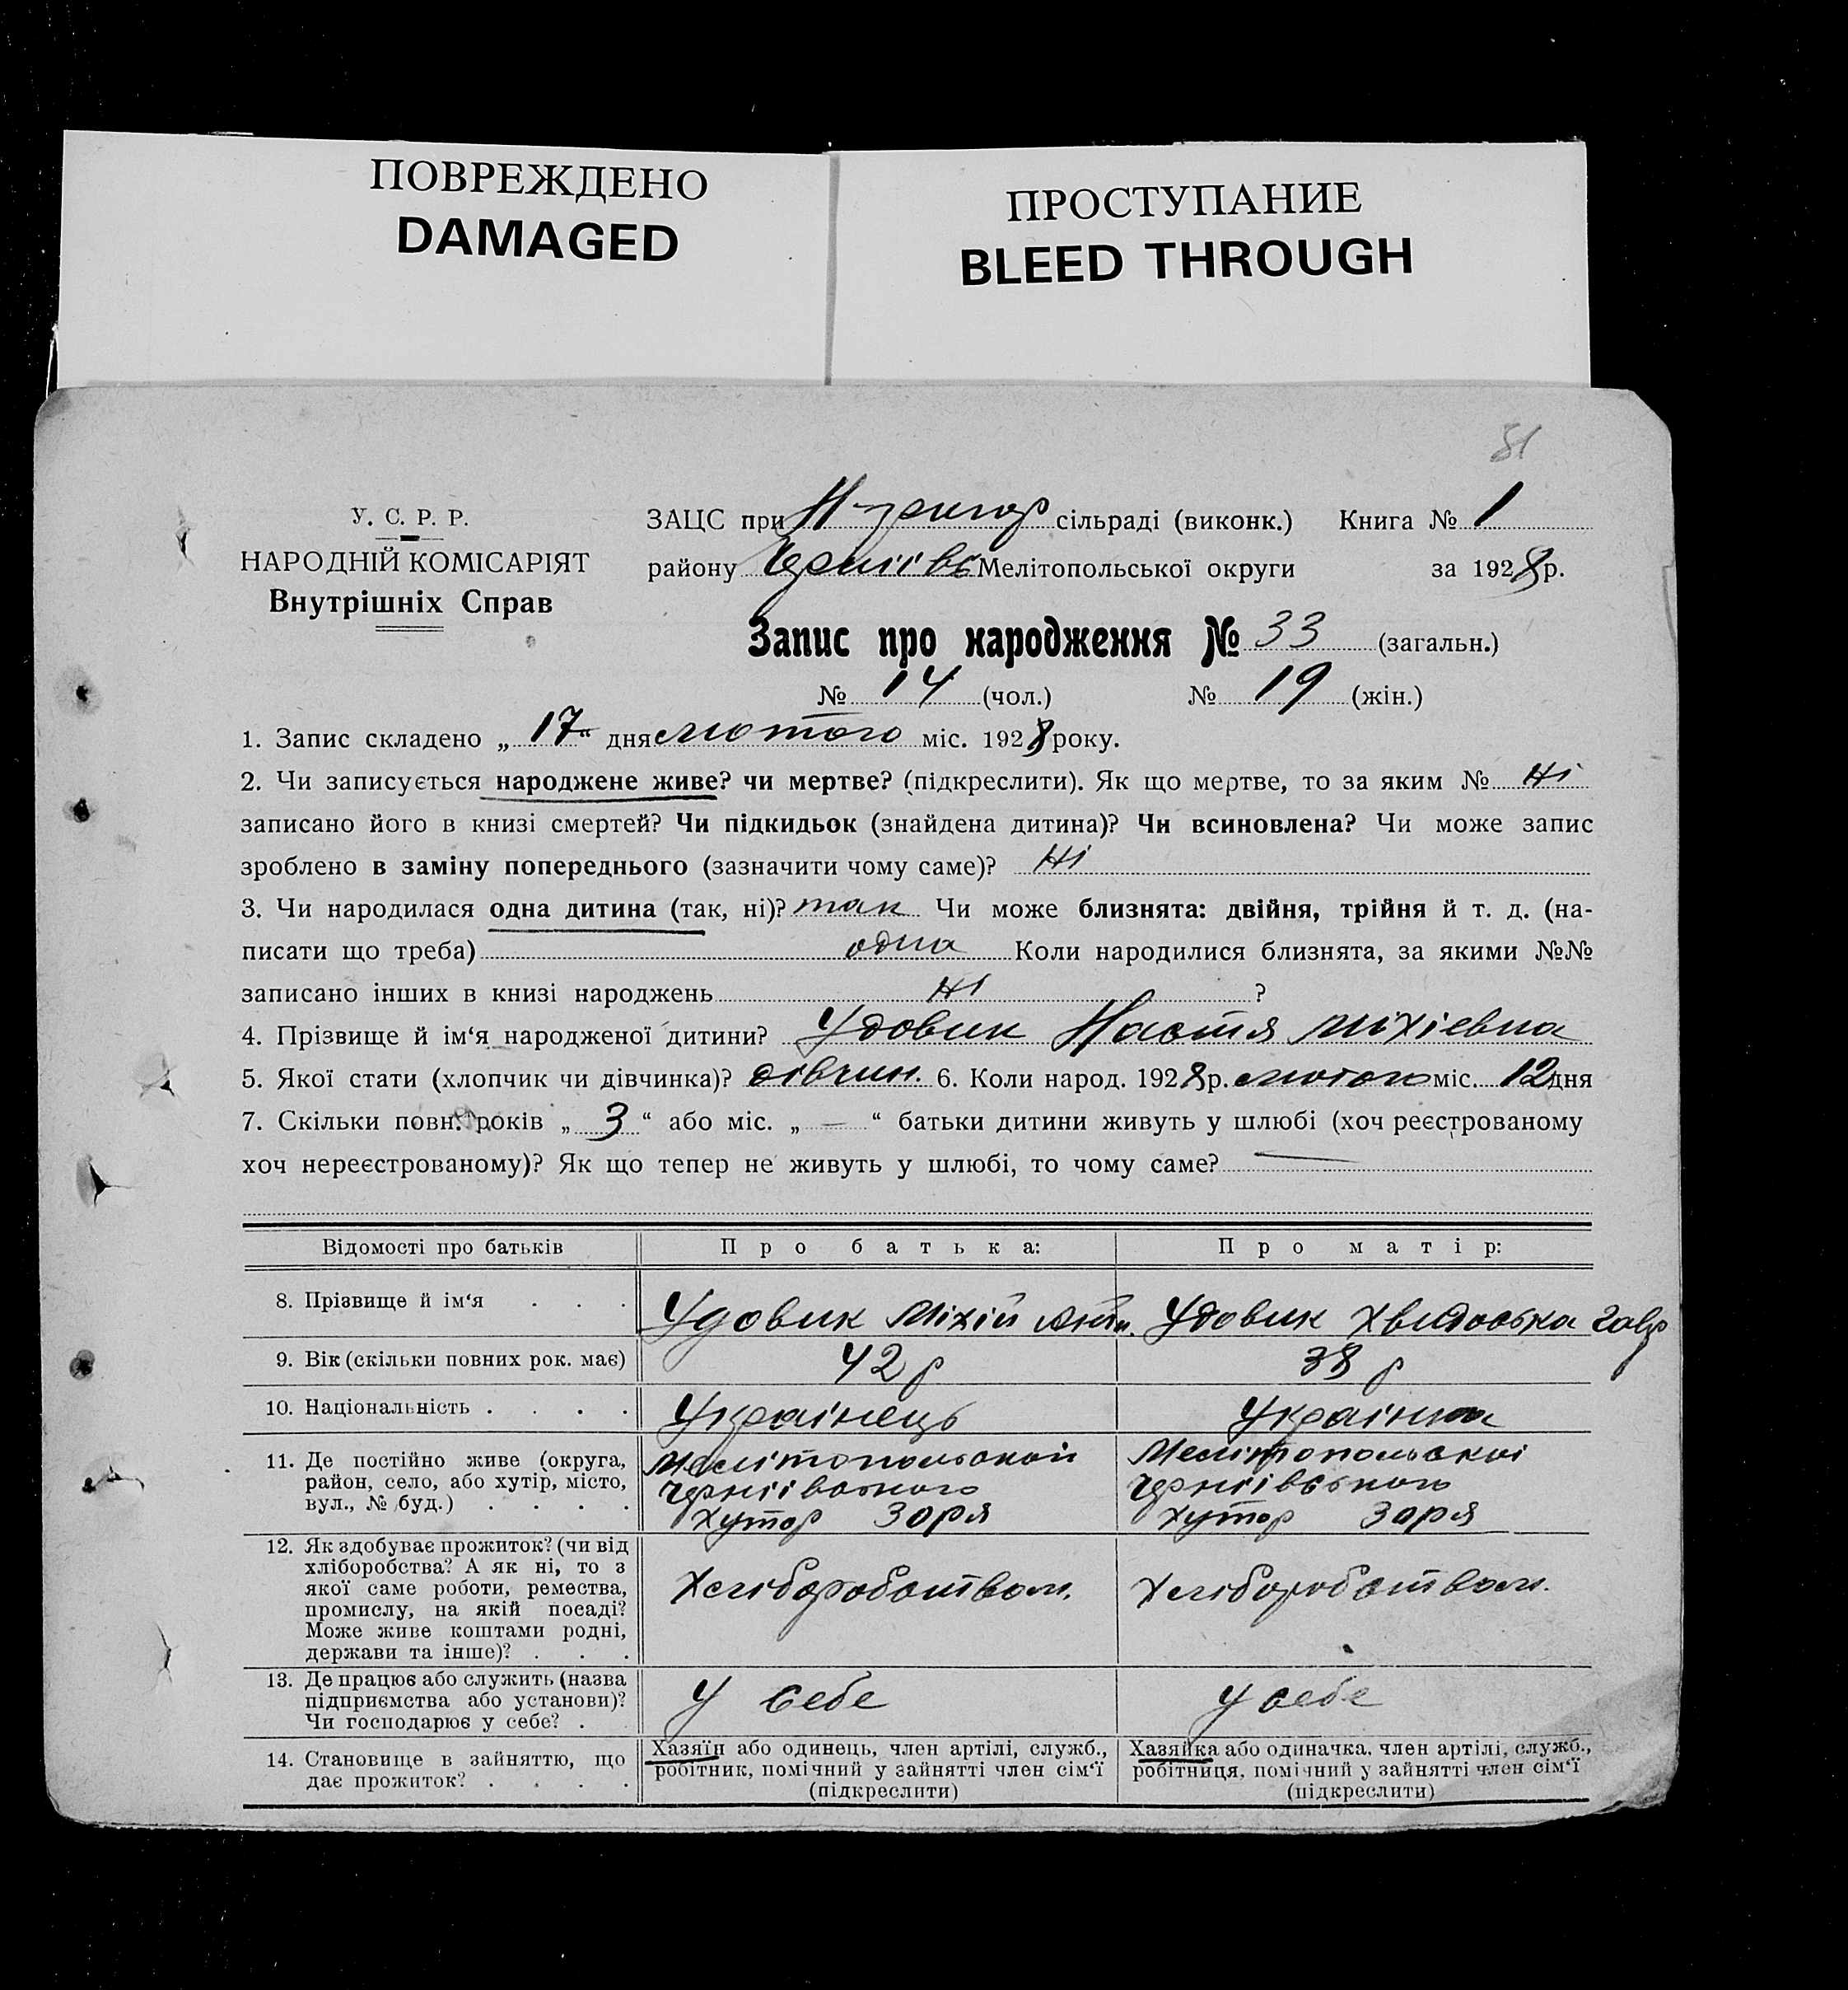 ПОВРЕЖДЕНО
DAMAGED
ПРОСТУПАНИЕ
BLEED THROUGH
81
У. С. Р. Р.
НАРОДНІЙ КОМІСАРІЯТ
Внутрішніх Справ
ЗАЦС при Н-григор сільраді (виконк.) Книга № 1
району Черніївс Мелітопольської округи за 1928 р.
Запис про народження № 33 (загальн.)
№ 14 (чол.) № 19 (жін.)
1. Запис складено „ 17 “ дня лютого міс. 1928 року.
2. Чи записується народжене живе? чи мертве? (підкреслити). Як що мертве, то за яким № Ні
записано його в книзі смертей? Чи підкидьок (знайдена дитина)? Чи всиновлена? Чи може запис
зроблено в заміну попереднього (зазначити чому саме)? Ні
3. Чи народилася одна дитина (так, ні)? так Чи може близнята: двійня, трійня й т. д. (на-
писати що треба) одна Коли народилися близнята, за якими №№
записано інших в книзі народжень Ні ?
4. Прізвище й ім‘я народженої дитини? Удовик Настя Міхіевна
5. Якої стати (хлопчик чи дівчинка)? дівчин. 6. Коли народ. 1928 р. лютого міс. 12 дня
7. Скільки повн. років „ 3 “ або міс. „ — “ батьки дитини живуть у шлюбі (хоч реєстрованому
хоч нереєстрованому)? Як що тепер не живуть у шлюбі, то чому саме? —
Відомості про батьків Про батька: Про матір:
8. Прізвище й ім‘я . . . Удовик Міхій Антн. Удовик Хвидоська Гавр
9. Вік (скільки повних рок. має) 42 р 38 р
10. Національність . . . . Українець Українка
11. Де постійно живе (округа, район, село, або хутір, місто, вул., № буд.) . . . .
Мелітопольской
Черніївського
Хутор Зоря
Мелітопольскоі
Черніівського
Хутор Зоря
12. Як здобуває прожиток? (чи від
хліборобства? А як ні, то з
якої саме роботи, ремества,
промислу, на якій посаді?
Може живе коштами родні,
держави та інше)? . . .
Хліборобством. Хліборобством.
13. Де працює або служить (назва
підприємства або установи)?
Чи господарює у себе? .
У себе У себе
14. Становище в зайняттю, що
дає прожиток? . . . .
Хазяїн або одинець, член артілі, служб.,
робітник, помічний у зайнятті член сім‘ї
(підкреслити)
Хазяйка або одиначка, член артілі, служб.,
робітниця, помічний у зайнятті член сім‘ї
(підкреслити)